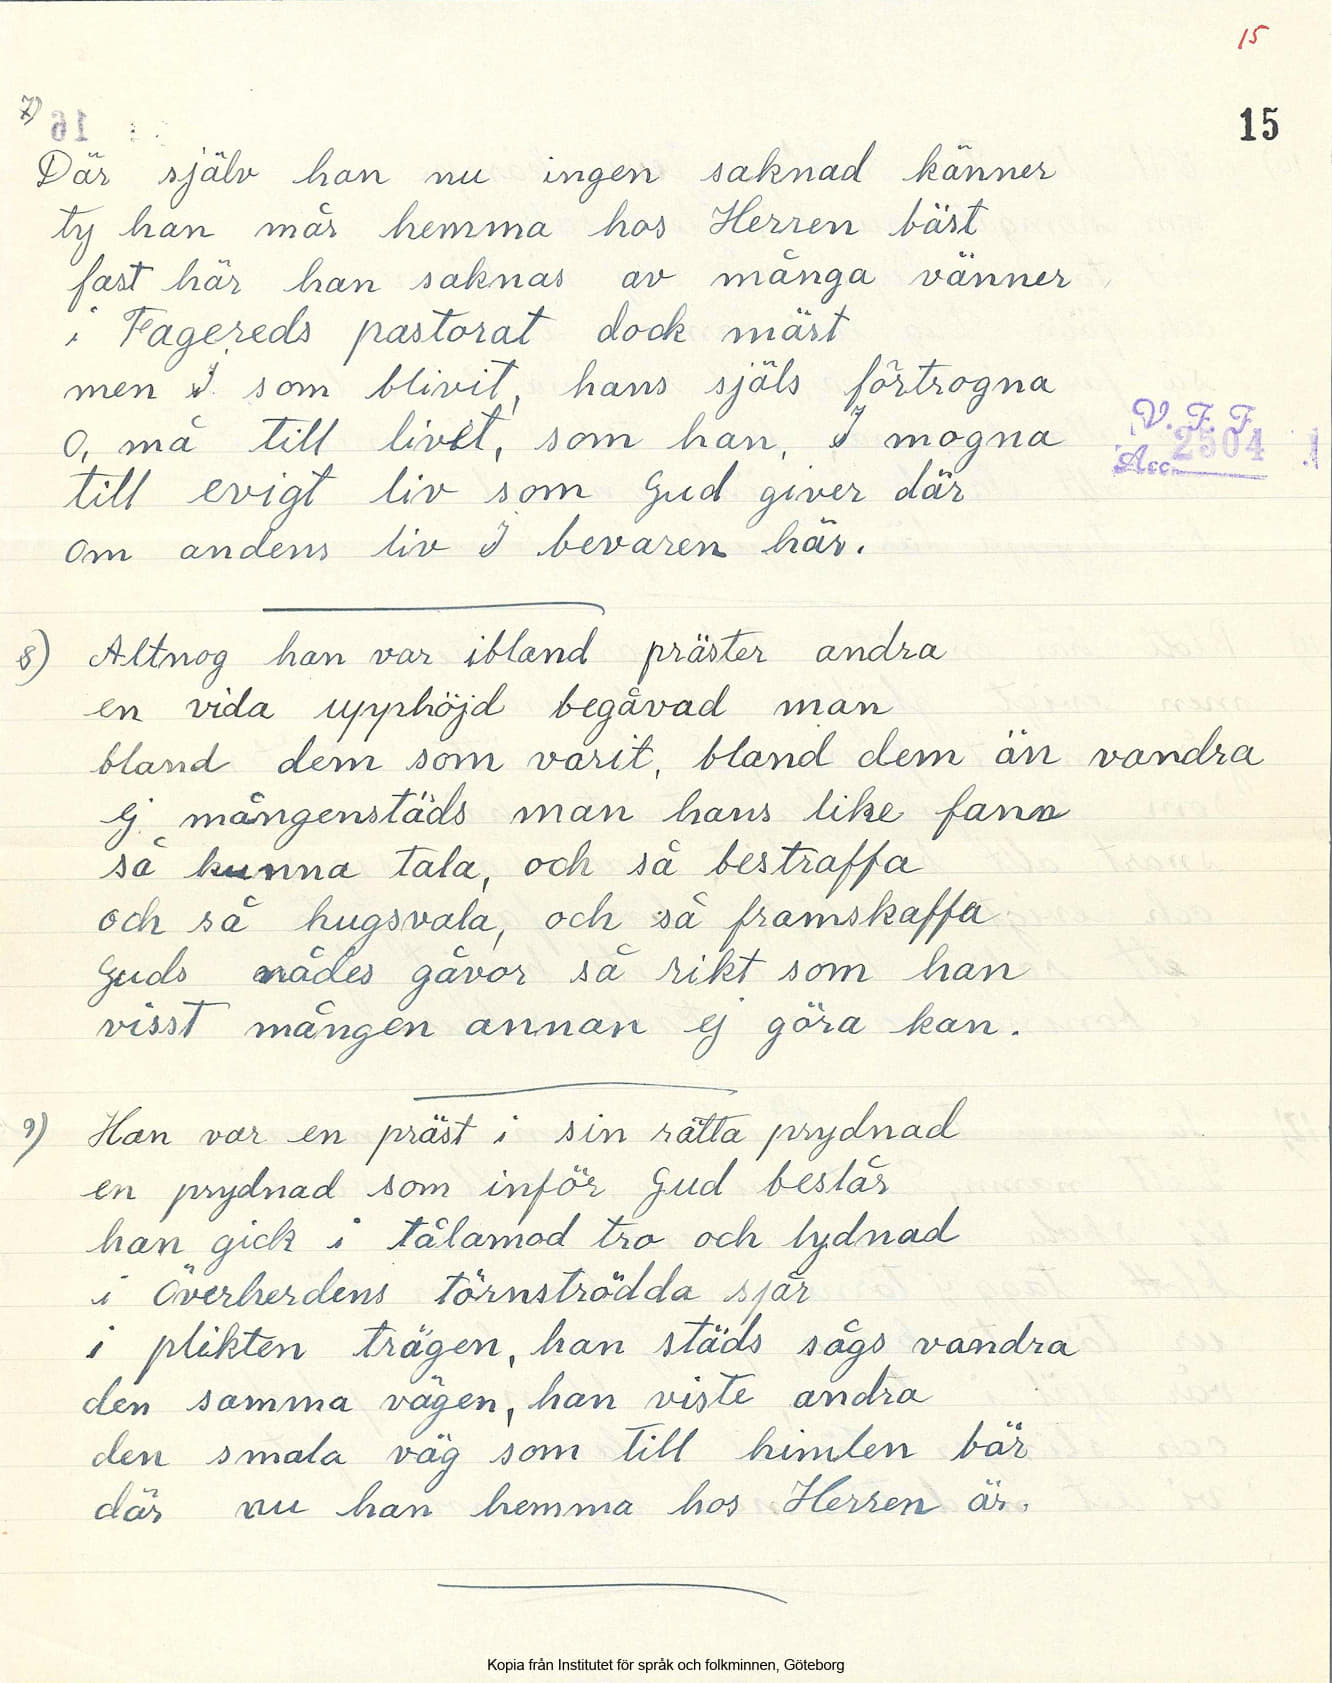 15
15
7)
Där själv han nu ingen saknad känner
ty han mår hemma hos Herren bäst
fast här han saknas av många vänner
i Fagereds pastorat dock mäst
men I som blivit, hans själs förtrogna
O, må till livet, som han, I mogna
V. F. F.
Acc. 2504
till evigt liv som Gud giver där
om andens liv I bevaren här.
8) Altnog han var ibland präster andra
en vida upphöjd begåvad man
bland dem som varit, bland dem än vandra
ej mångenstäds man hans like fann
så kunna tala, och så bestraffa
och så hugsvala, och så framskaffa
Guds nådes gåvor så rikt som han
visst mången annan ej göra kan.
9) Han var en präst i sin rätta prydnad
en prydnad som inför Gud består
han gick i tålamod tro och lydnad
i Överherdens törnströdda spår
i plikten trägen, han städs sågs vandra
den samma vägen, han viste andra
den smala väg som till himlen bär
där nu han hemma hos Herren är.
Kopia från Institutet för språk och folkminnen, Göteborg